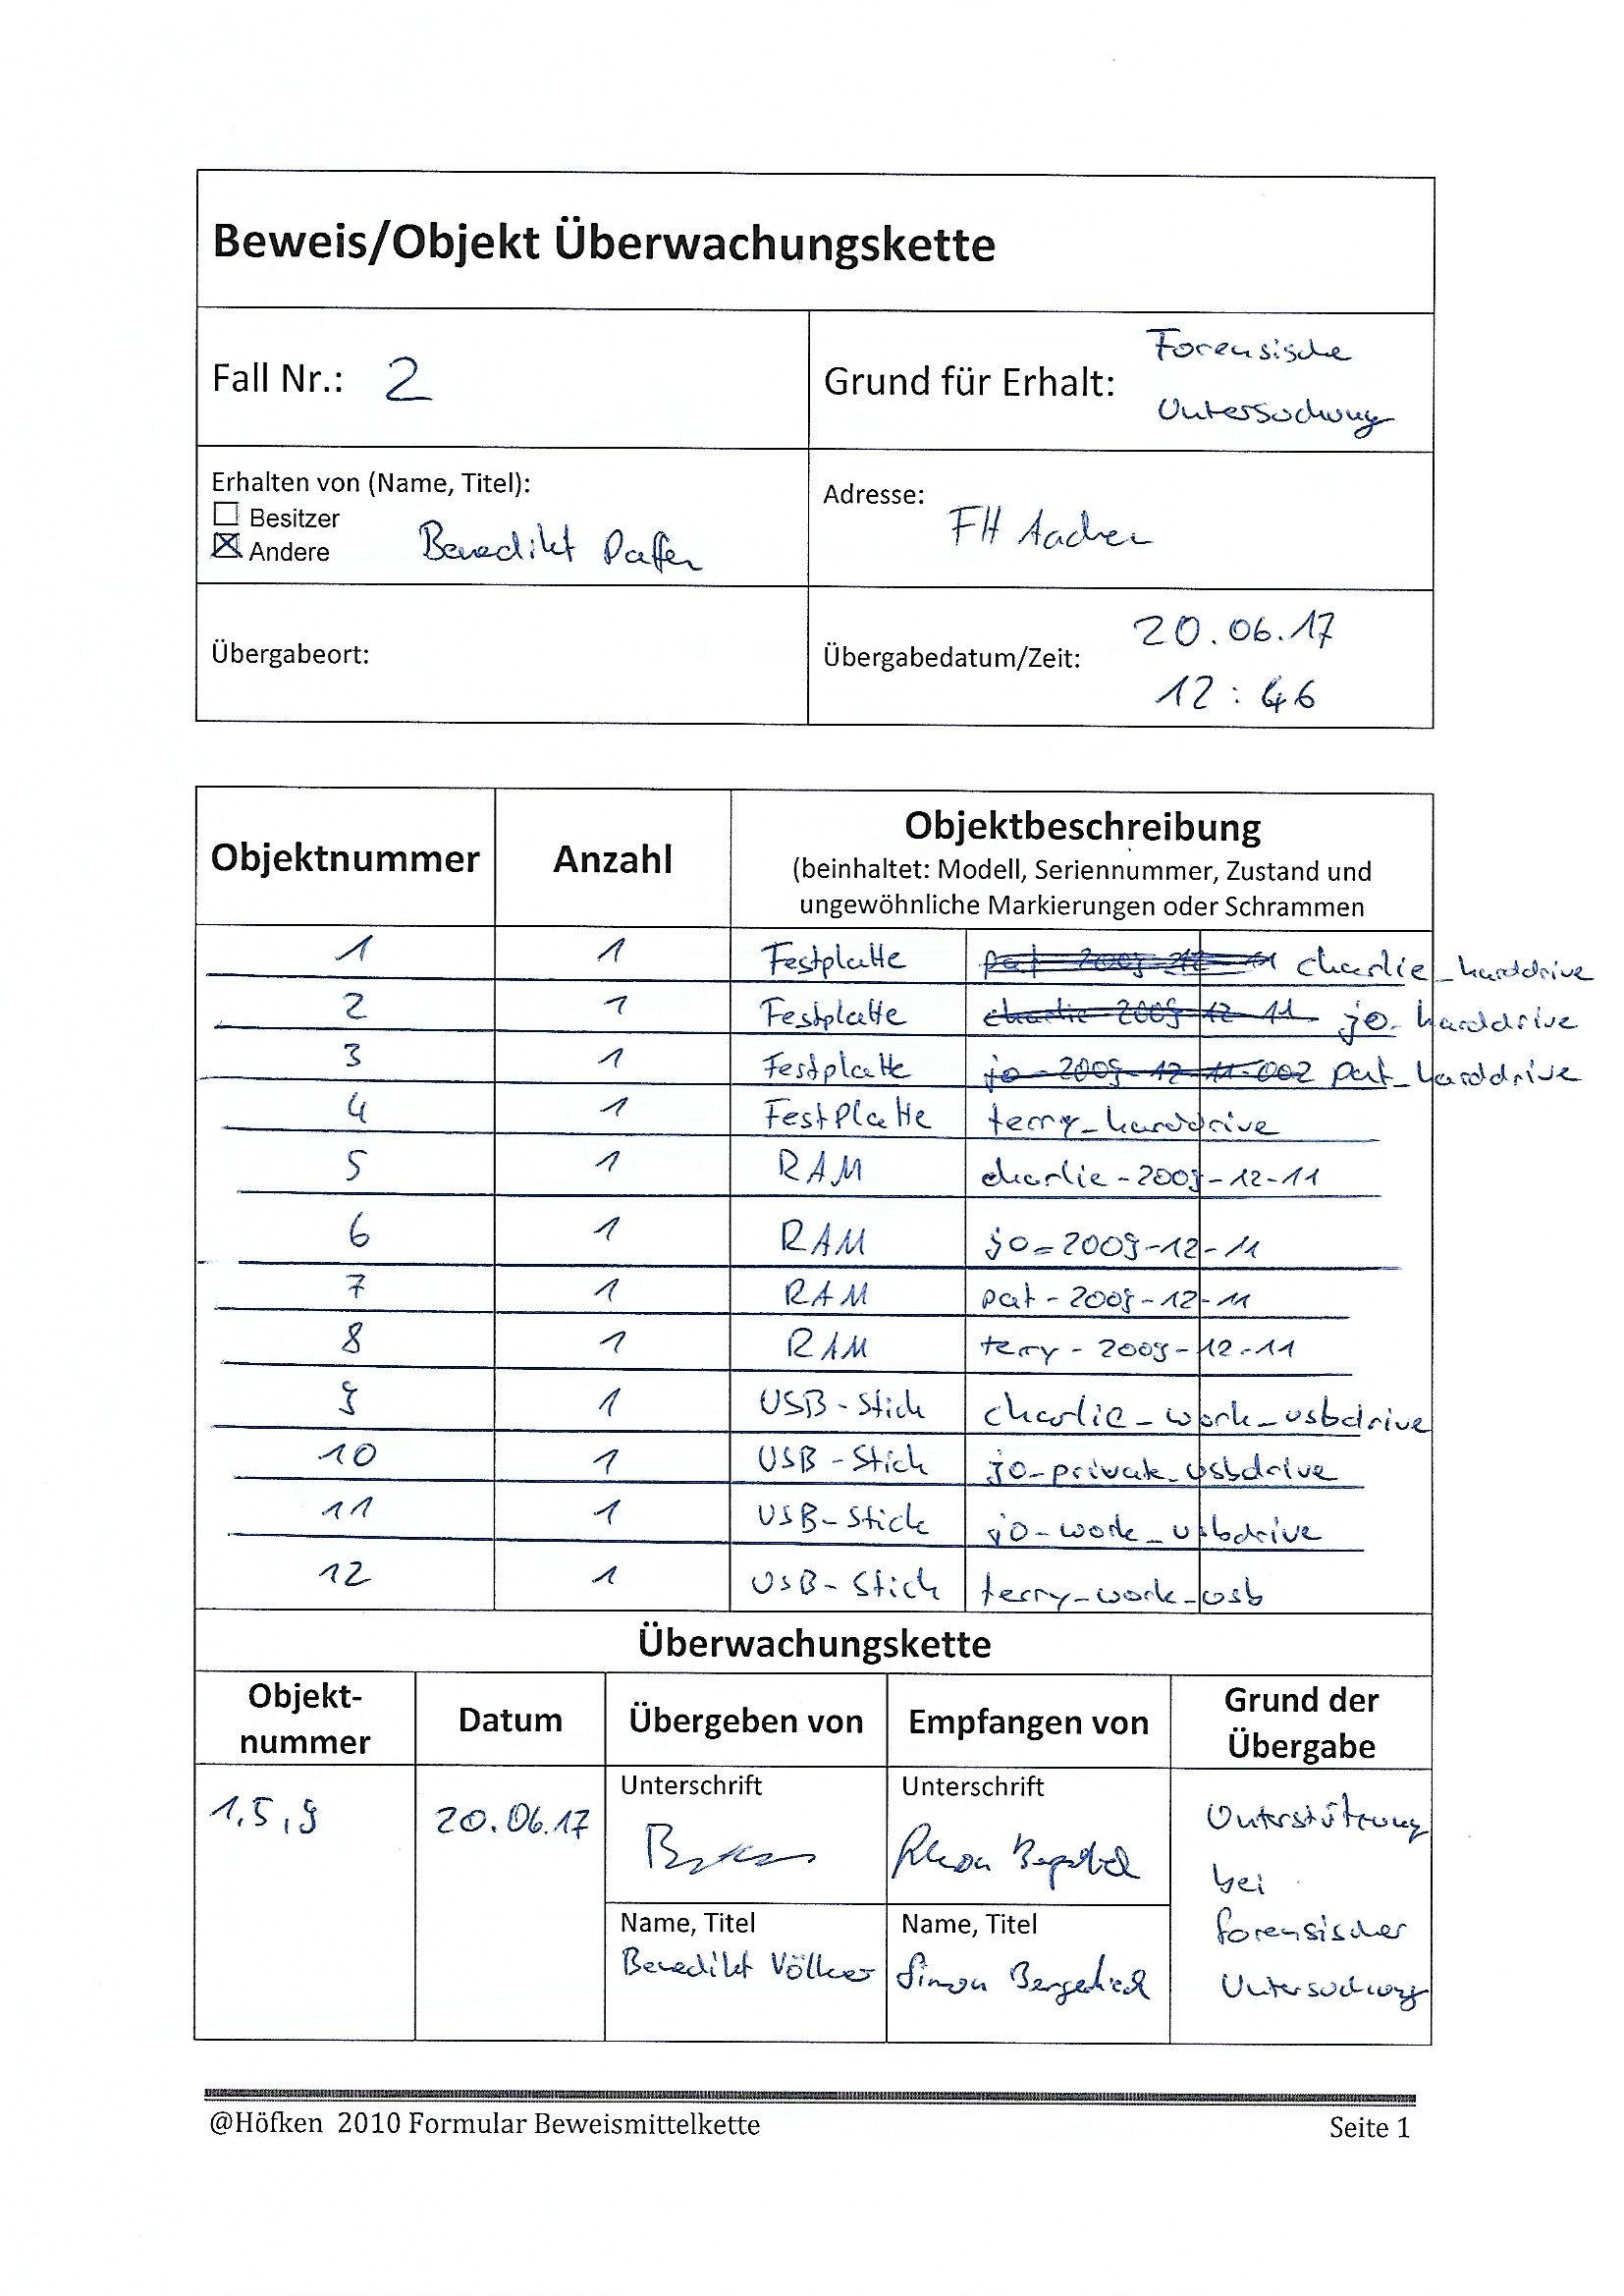 Beweis/Objekt Überwachungskette
Fall Nr.: 2
Grund für Erhalt: Forensische
Untersuchung
Erhalten von (Name, Titel):
☐ Besitzer
☒ Andere
Benedikt Paffen
Adresse:
FH Aachen
Übergabeort:
Übergabedatum/Zeit:
20.06.17
12:46
Objektnummer Anzahl Objektbeschreibung
(beinhaltet: Modell, Seriennummer, Zustand und
ungewöhnliche Markierungen oder Schrammen
1 1 Festplatte pat 2009 12 11 charlie_harddrive
2 1 Festplatte charlie-2009-12-11 jo-harddrive
3 1 Festplatte jo-2009-12-11-002 pat_harddrive
4 1 FestPlatte terry_harddrive
5 1 RAM charlie-2009-12-11
6 1 RAM jo-2009-12-11
7 1 RAM pat-2009-12-11
8 1 RAM terry-2009-12-11
9 1 USB-Stick charlie_work_usbdrive
10 1 USB-Stick jo-private_usbdrive
11 1 USB-Stick jo-work_usbdrive
12 1 USB-Stick terry-work_usb
Überwachungskette
Objekt-
nummer
Datum
Übergeben von
Empfangen von
Grund der
Übergabe
1,5,9
20.06.17
Unterschrift
Unterschrift
Simon
Name, Titel
Benedikt Völker
Name, Titel
Simon
Unterstützung
bei
forensischer
Untersuchung
@Höfken 2010 Formular Beweismittelkette
Seite 1